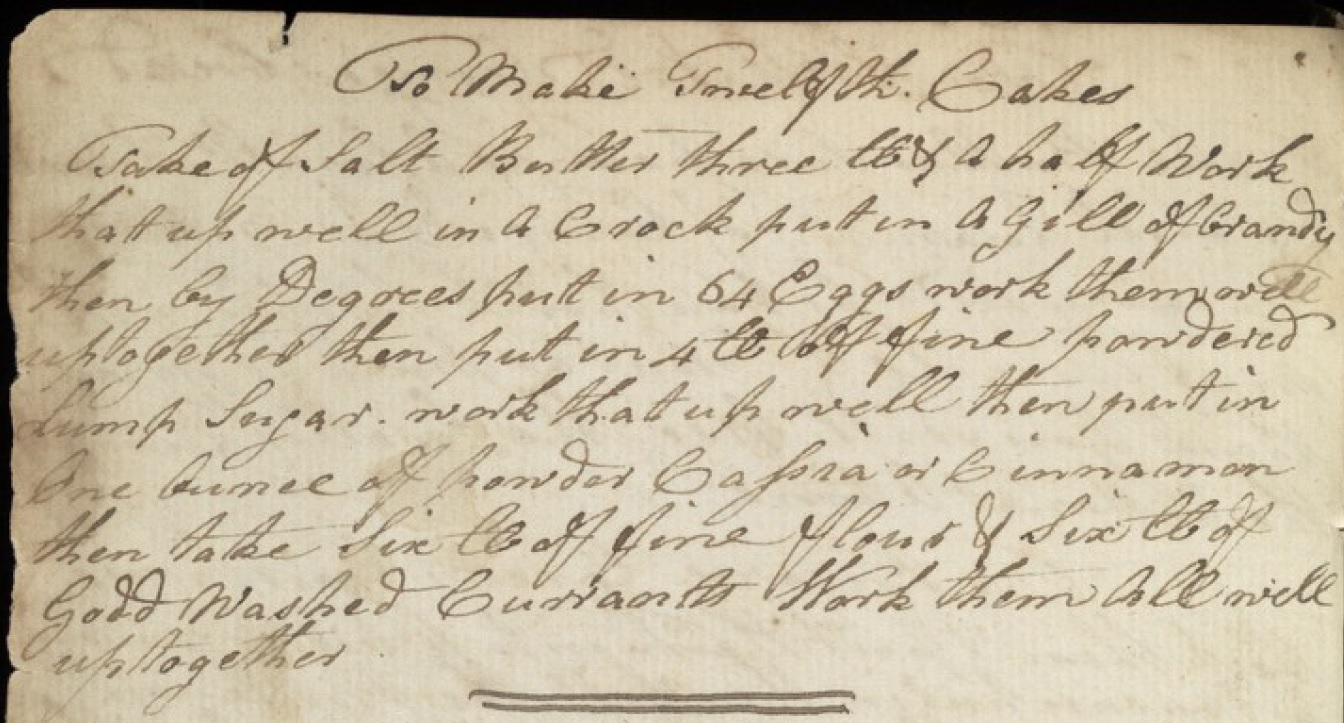 To Make Twelfth. Cakes
Take of Salt Butter three lb & A half Work
that up well in A Crock put in A Gill of brandy
then by Degrees put in 64 Eggs work them well
up together then put in 4 lb off fine powdered
Lump Sugar. work that up well then put in
One ounce of powder Cassia or Cinnamon
then take Six lb off fine flour & Six lb of
Godd Washed Currants Work them All well
up together